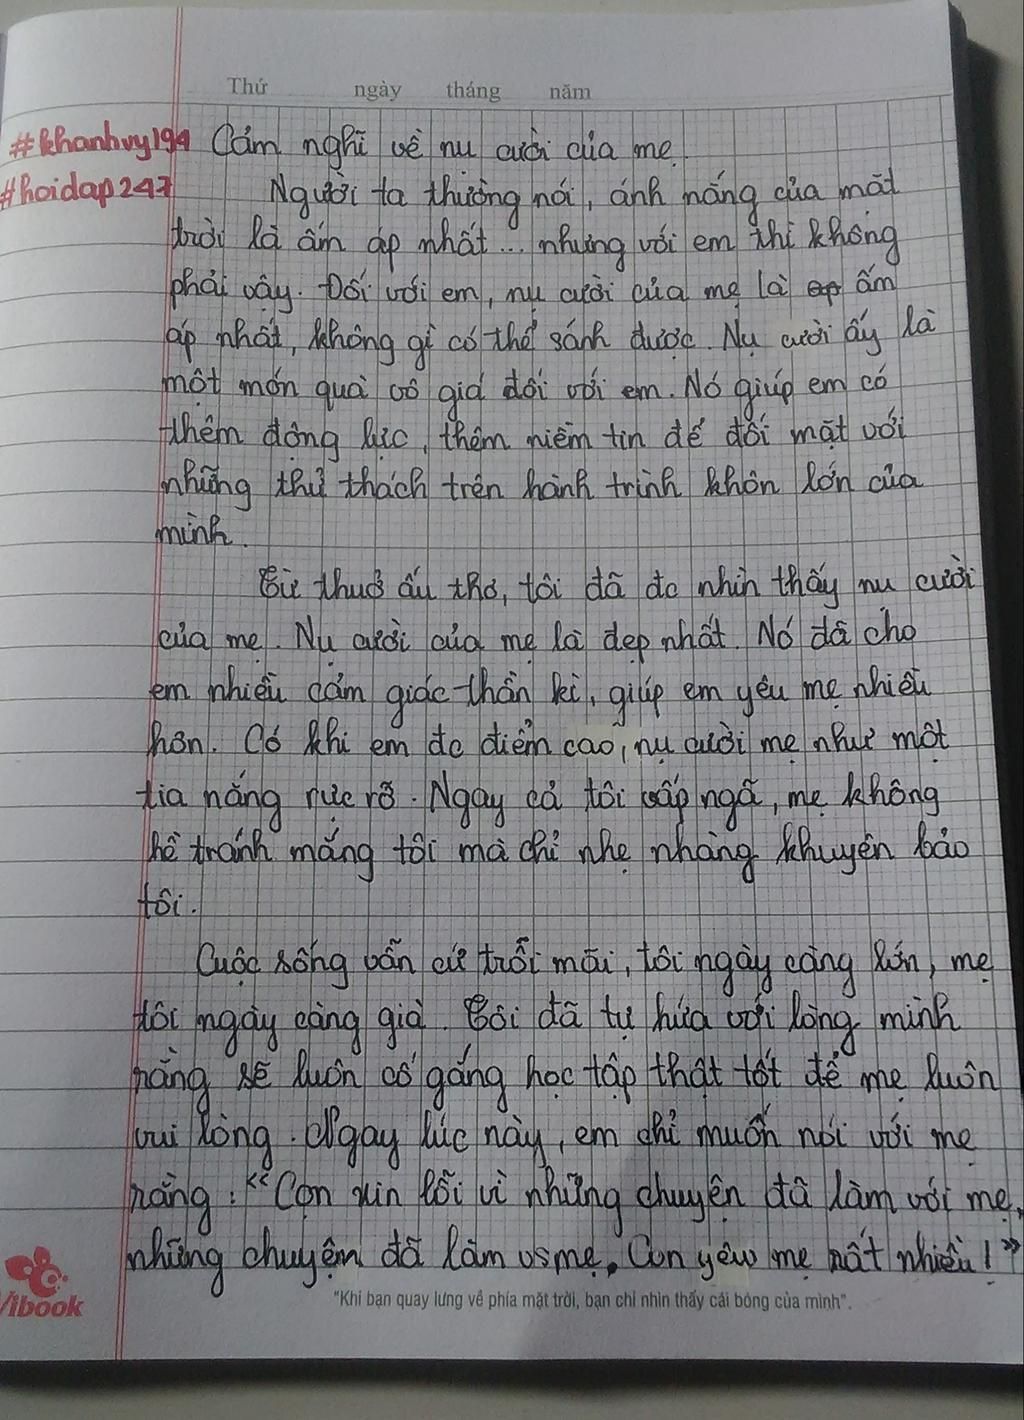 Thứ ngày tháng năm
#khanhvy194 Cảm nghĩ về nụ cười của mẹ.
#hoidap247 Người ta thường nói, ánh nắng của mặt
trời là ấm áp nhất... nhưng với em thì không
phải vậy. Đối với em, nụ cười của mẹ là ấm
áp nhất, không gì có thể sánh được. Nụ cười ấy là
một món quà vô giá đối với em. Nó giúp em có
thêm động lực, thêm niềm tin để đối mặt với
những thử thách trên hành trình khôn lớn của
mình.
Từ thuở ấu thơ, tôi đã đc nhìn thấy nụ cười
của mẹ. Nụ cười của mẹ là đẹp nhất. Nó đã cho
em nhiều cảm giác thần kì, giúp em yêu mẹ nhiều
hơn. Có khi em đc điểm cao, nụ cười mẹ như một
tia nắng rực rỡ. Ngay cả tôi vấp ngã, mẹ không
hề tránh mắng tôi mà chỉ nhẹ nhàng khuyên bảo
tôi.
Cuộc sống vẫn cứ trôi mãi, tôi ngày càng lớn, mẹ
tôi ngày càng già. Tôi đã tự hứa với lòng mình
rằng sẽ luôn cố gắng học tập thật tốt để mẹ luôn
vui lòng. Ngay lúc này, em chỉ muốn nói với mẹ
rằng: "Con xin lỗi vì những chuyện đã làm với mẹ,
những chuyện đã làm vs mẹ. Con yêu mẹ rất nhiều!"
Vibook
"Khi bạn quay lưng về phía mặt trời, bạn chỉ nhìn thấy cái bóng của mình".